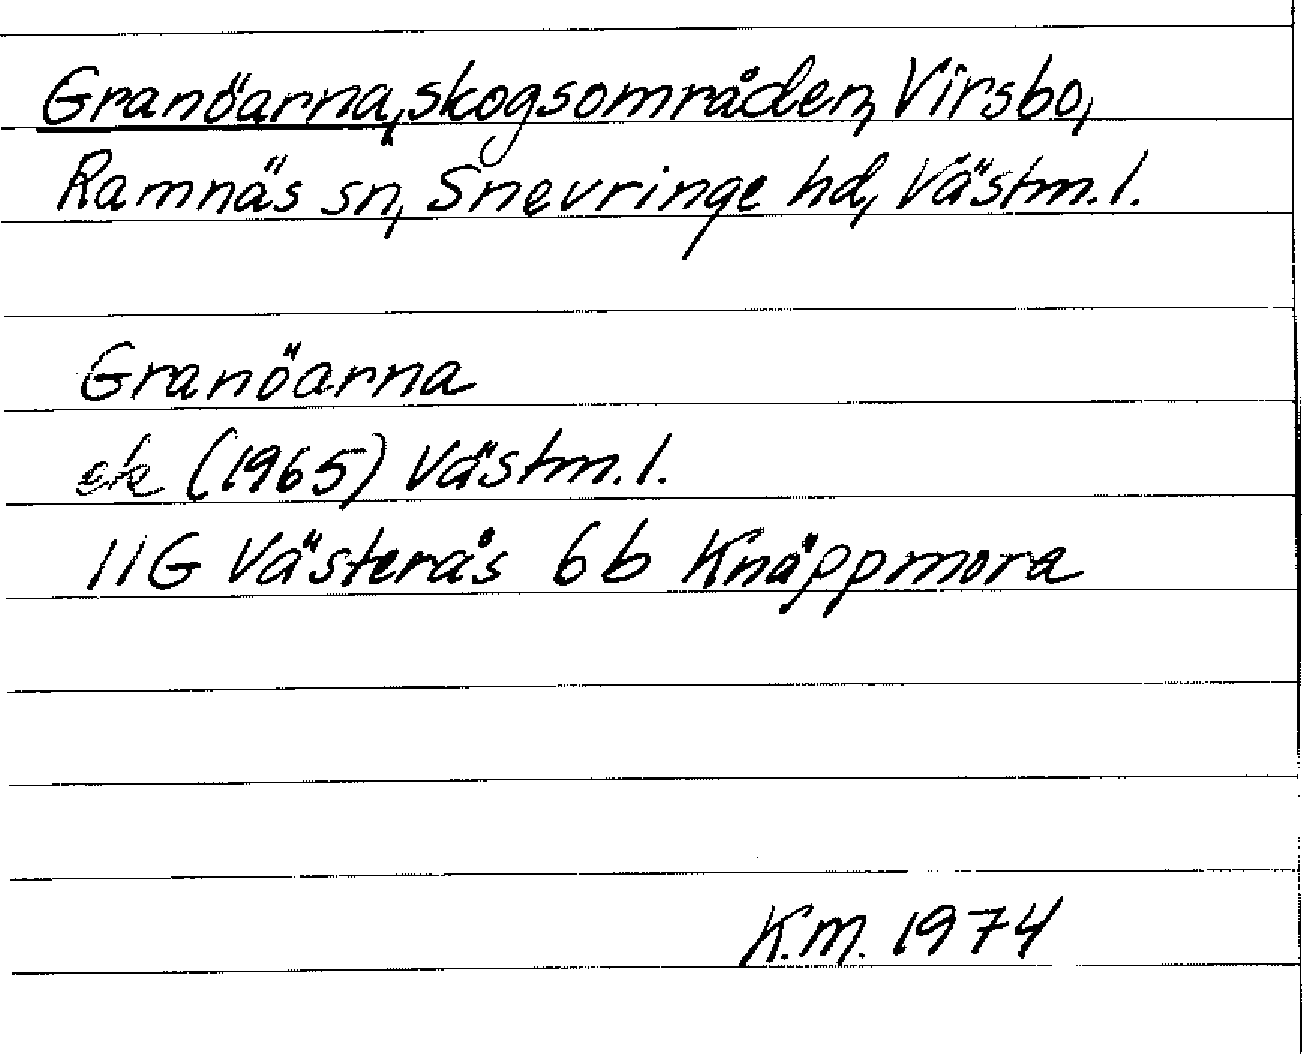 Granöarna, skogsområden, Virsbo,
Ramnäs sn, Snevringe hd, Västm. l.
Granöarna
ek (1965) Västm. l.
11G Västerås 6b Knäppmora
K.M. 1974